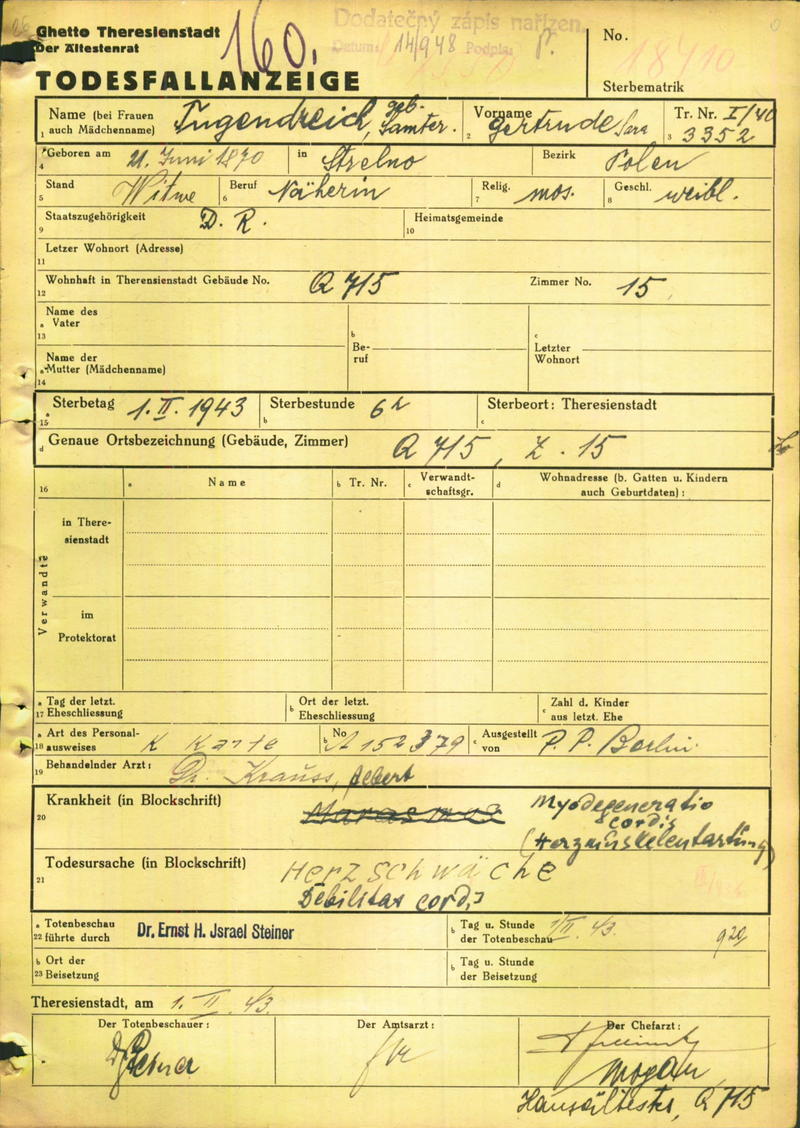 Ghetto Theresienstadt
Der Ältestenrat
160.
Dodatečný zápis nařízen.
Datum: 14/9 48 Podpis:
No.
18410
TODESFALLANZEIGE
Sterbematrik
Name (bei Frauen auch Mädchenname) Tugendreich, geb. Samter.
1
Vorname Gertrude Sara
2
Tr. Nr. I/40
3 3352
Geboren am 21. Juni 1870 in Strelno Bezirk Polen
4
Stand Witwe Beruf Näherin Relig. mos. Geschl. weibl.
5 6 7 8
Staatszugehörigkeit D. R. Heimatsgemeinde
9 10
Letzer Wohnort (Adresse)
11
Wohnhaft in Theresienstadt Gebäude No. Q 715 Zimmer No. 15
12
Name des
a Vater
13
b
Be-
ruf
c
Letzter
Wohnort
Name der
a Mutter (Mädchenname)
14
a Sterbetag 1. II. 1943 b Sterbestunde 6h c Sterbeort: Theresienstadt
15
d Genaue Ortsbezeichnung (Gebäude, Zimmer) Q 715, Z. 15
16 a Name b Tr. Nr. c Verwandt-
schaftsgr. d Wohnadresse (b. Gatten u. Kindern
auch Geburtdaten):
Verwandte
in There-
sienstadt
im
Protektorat
a Tag der letzt.
17 Eheschliessung
b Ort der letzt.
Eheschliessung
c Zahl d. Kinder
aus letzt. Ehe
a Art des Personal-
18 ausweises K Karte
b No A 152379
c Ausgestellt
von P. P. Berlin.
Behandelnder Arzt: Dr. Krauss,
19
Krankheit (in Blockschrift) Marasmus Myodegeneratio
20 cordis
(Herzmuskelentartung)
Todesursache (in Blockschrift) Herzschwäche
21 Debilitas cordis
a Totenbeschau
22 führte durch Dr. Ernst H. Jsrael Steiner
b Tag u. Stunde
der Totenbeschau 1/II. 43. 920
a Ort der
23 Beisetzung
b Tag u. Stunde
der Beisetzung
Theresienstadt, am 1. II. 43.
Der Totenbeschauer: Der Amtsarzt: Der Chefarzt:
Dr Steiner
Hausälteste, Q 715